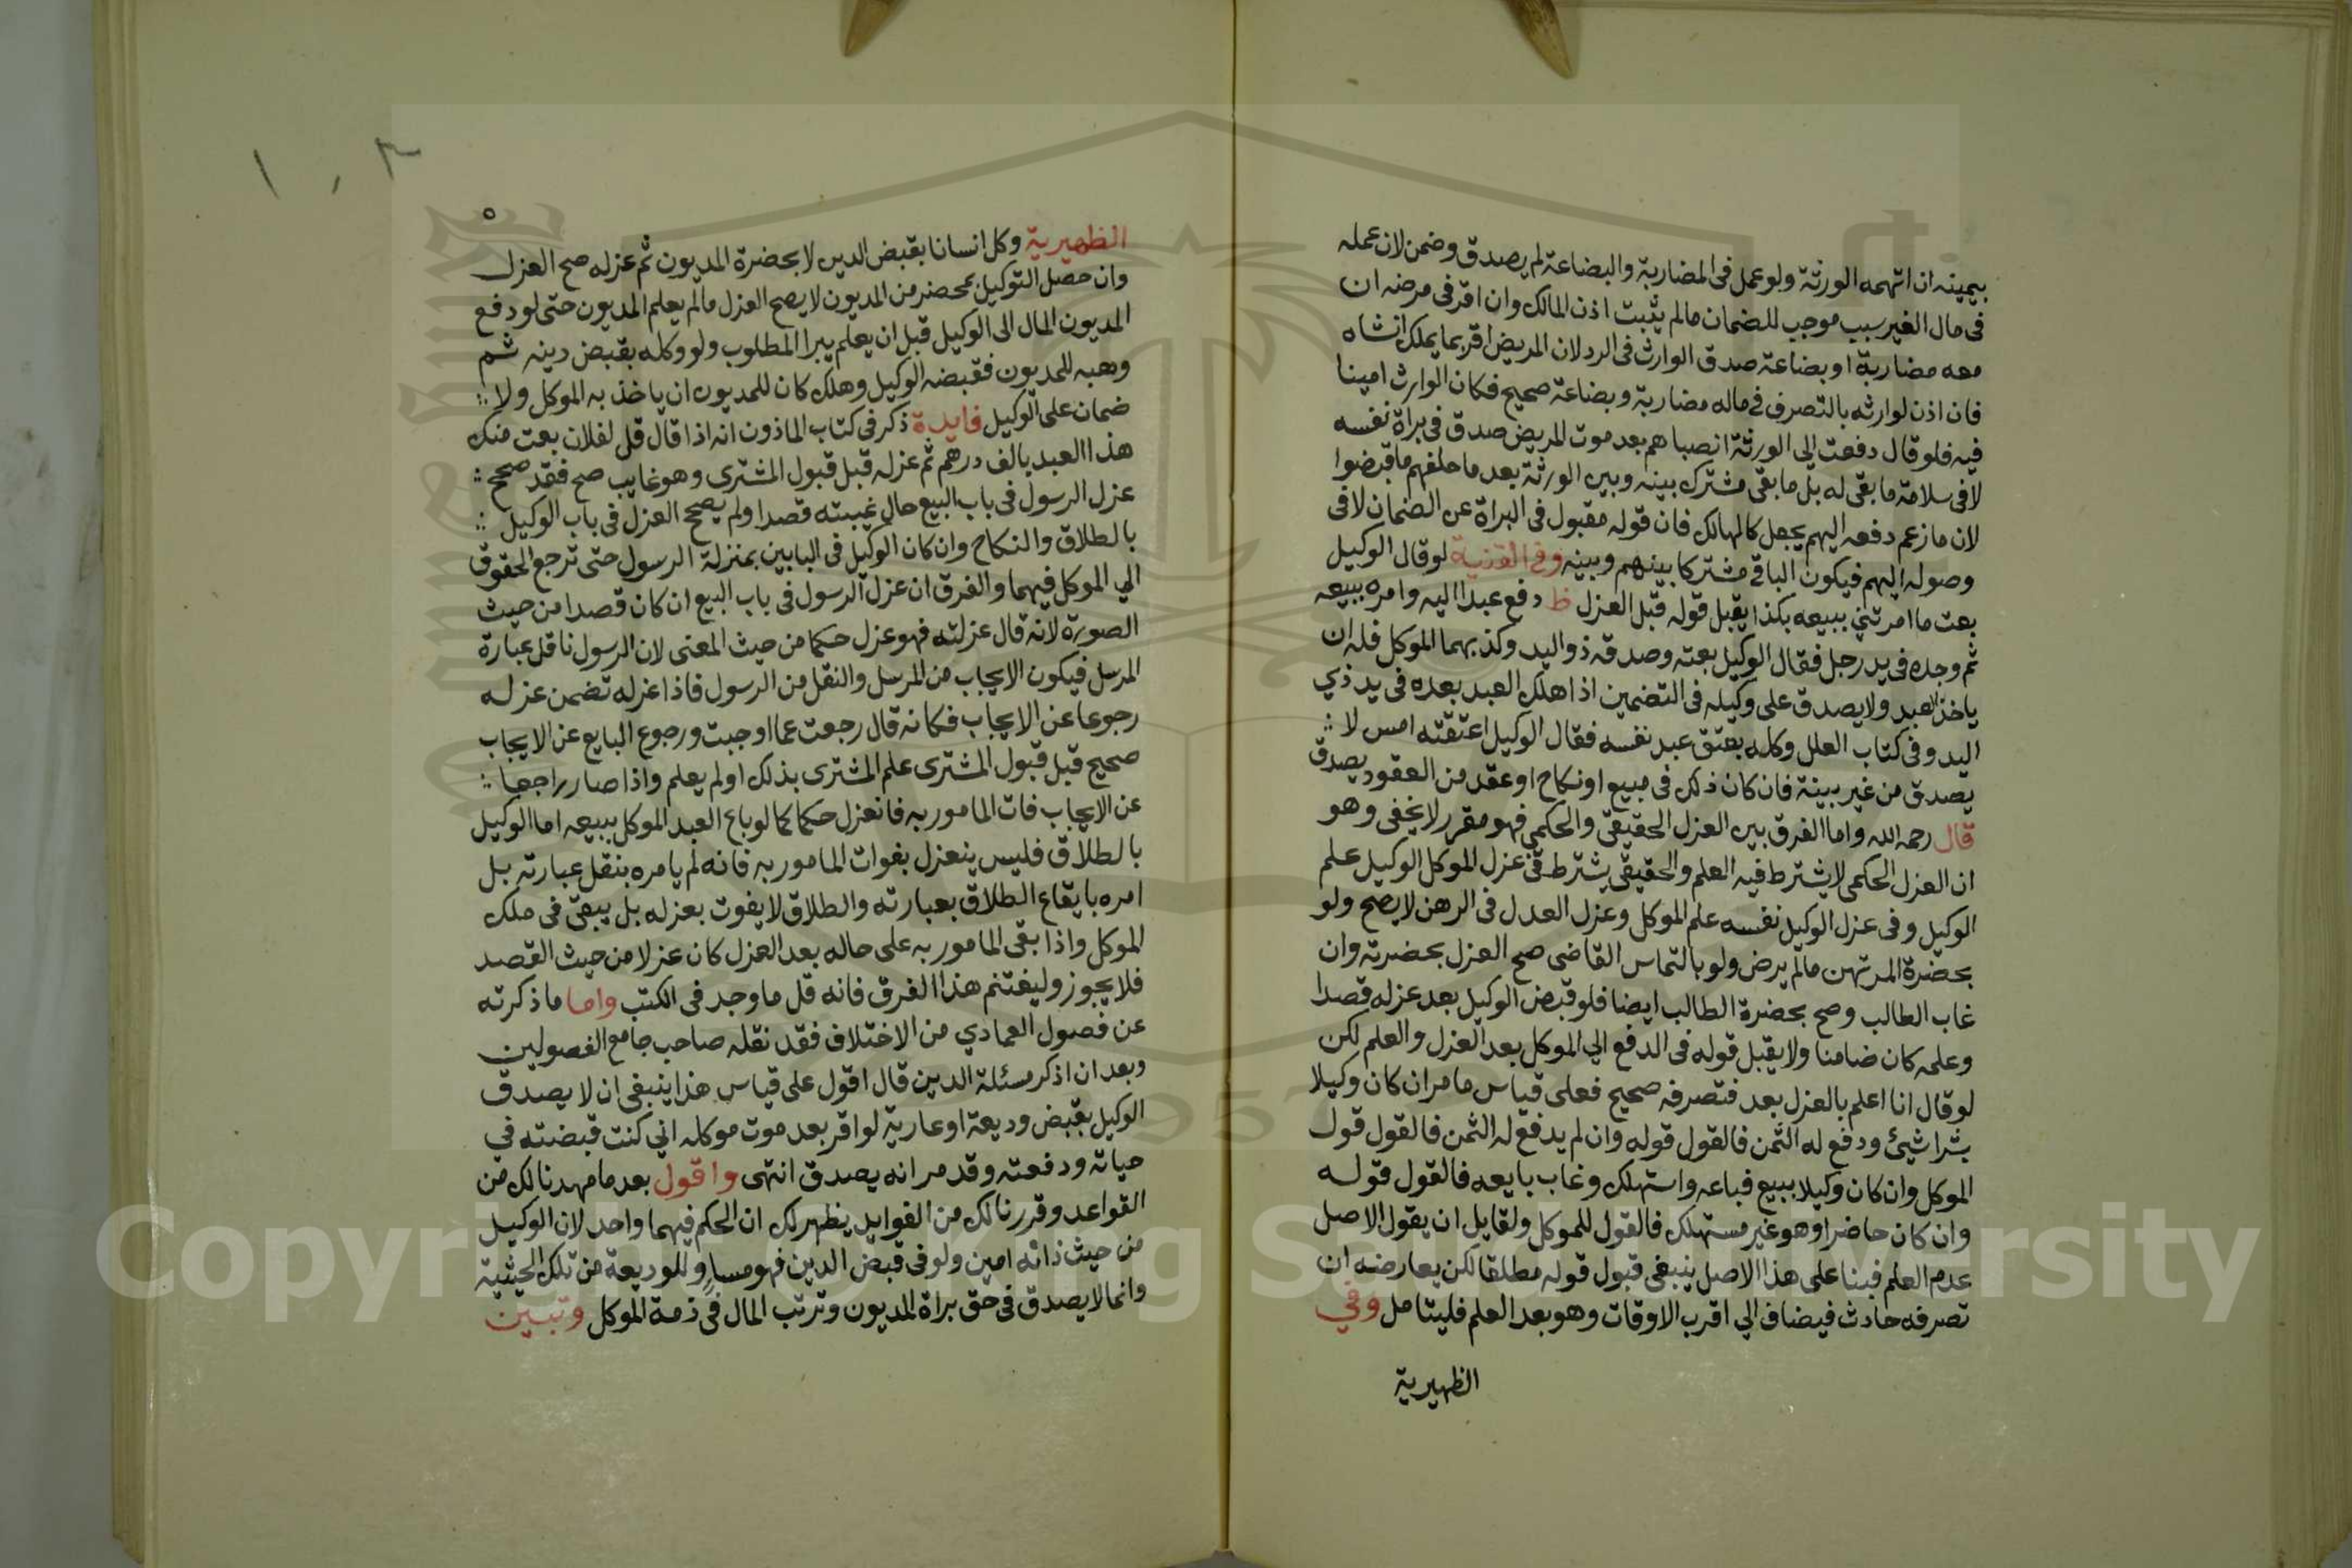 بيمينه ان اتهمه الورثة ولو عمل في المضاربة والبضاعة لم يصدق وضمن لان عمله
في مال الغير سبب موجب للضمان مالم يثبت اذن المالك وان اقر في مرضه ان
معه مضاربة او بضاعة صدق الوارث في الرد لان المريض اقر بما يملك انشاه
فان اذن لوارثه بالتصرف في ماله مضاربة وبضاعة صحيح فكان الوارث امينا
فيه فلو قال دفعت الى الورثة انصباهم بعد موت المريض صدق في براة نفسه
لا في سلامة ما بقى له بل ما بقى مشترك بينه وبين الورثة بعد ما حلفهم ما قبضوا
لان ما زعم دفعه اليهم يجعل كالهالك فان قوله مقبول في البراة عن الضمان لا في
وصوله اليهم فيكون الباقي مشتركا بينهم وبينه وفي القنية لو قال الوكيل
بعت ما امرتني ببيعه بكذا يقبل قوله قبل العزل ظ دفع عبدا اليه وامره ببيعه
ثم وجده في يد رجل فقال الوكيل بعته وصدقه ذو اليد وكذبهما الموكل فله ان
ياخذ العبد ولا يصدق على وكيله في التضمين اذا هلك العبد بعده في يد ذي
اليد وفي كتاب العلل وكله بعتق عبد نفسه فقال الوكيل اعتقته امس لا
يصدق من غير بينة فان كان ذلك في مبيع او نكاح او عقد من العقود يصدق
قال رحمه الله واما الفرق بين العزل الحقيقي والحكمي فهو مقرر لا يخفى وهو
ان العزل الحكمي لا يشترط فيه العلم والحقيقي يشترط ففي عزل الموكل الوكيل علم
الوكيل وفي عزل الوكيل نفسه علم الموكل وعزل العدل في الرهن لا يصح ولو
بحضرة المرتهن مالم يرض ولو بالتماس القاضي صح العزل بحضرته وان
غاب الطالب وصح بحضرة الطالب ايضا فلو قبض الوكيل بعد عزله قصدا
وعلمه كان ضامنا ولا يقبل قوله في الدفع الي الموكل بعد العزل والعلم لكن
لو قال انا اعلم بالعزل بعد فتصرفه صحيح فعلى قياس ما مر ان كان وكيلا
بشرا شيئ ودفع له الثمن فالقول قوله وان لم يدفع له الثمن فالقول قول
الموكل وان كان وكيلا ببيع فباعه واستهلك وغاب بايعه فالقول قوله
وان كان حاضرا وهو غير مستهلك فالقول للموكل ولقايل ان يقول الاصل
عدم العلم فبنا على هذا الاصل ينبغي قبول قوله مطلقا لكن يعارضه ان
تصرفه حادث فيضاف الي اقرب الاوقات وهو بعد العلم فليتامل وفي
الظهيرية
١٠٣
٥
الظهيرية وكل انسانا بقبض الدين لا بحضرة المديون ثم عزله صح العزل
وان حصل التوكيل بمحضر من المديون لا يصح العزل مالم يعلم المديون حتى لو دفع
المديون المال الى الوكيل قبل ان يعلم يبرا المطلوب ولو وكله بقبض دينه ثم
وهبه للمديون فقبضه الوكيل وهلك كان للمديون ان ياخذ به الموكل ولا
ضمان على الوكيل فايدة ذكر في كتاب الماذون انه اذا قال قل لفلان بعت منك
هذا العبد بالف درهم ثم عزله قبل قبول المشترى وهو غايب صح فقد صحح
عزل الرسول في باب البيع حال غيبته قصدا ولم يصحح العزل في باب الوكيل
بالطلاق والنكاح وان كان الوكيل في البابين بمنزلة الرسول حتى ترجع الحقوق
الي الموكل فيهما والفرق ان عزل الرسول في باب البيع ان كان قصدا من حيث
الصورة لانه قال عزلته فهو عزل حكما من حيث المعنى لان الرسول ناقل عبارة
المرسل فيكون الايجاب من المرسل والنقل من الرسول فاذا عزله تضمن عزله
رجوعا عن الايجاب فكانه قال رجعت عما اوجبت ورجوع البايع عن الايجاب
صحيح قبل قبول المشترى علم المشترى بذلك او لم يعلم واذا صار راجعا
عن الايجاب فات المامور به فانعزل حكما كما لو باع العبد الموكل ببيعه اما الوكيل
بالطلاق فليس ينعزل بفوات المامور به فانه لم يامره بنقل عبارته بل
امره بايقاع الطلاق بعبارته والطلاق لا يفوت بعزله بل يبقى في ملك
الموكل واذا بقى المامور به على حاله بعد العزل كان عزلا من حيث القصد
فلا يجوز وليغتنم هذا الفرق فانه قل ما وجد في الكتب واما ما ذكرته
عن فصول العمادي من الاختلاف فقد نقله صاحب جامع الفصولين
وبعد ان اذكر مسئلة الدين قال اقول على قياس هذا ينبغي ان لا يصدق
الوكيل بقبض وديعة او عارية لو اقر بعد موت موكله اني كنت قبضته في
حياته ودفعته وقد مر انه يصدق انتهى واقول بعد ما مهدنا لك من
القواعد وقررنا لك من الفوايد يظهر لك ان الحكم فيهما واحد لان الوكيل
من حيث ذاته امين ولو في قبض الدين فهو مساو للوديعة من تلك الحيثية
وانما لا يصدق في حق براة المديون وترتب المال في ذمة الموكل وتبين
Copyright © King Saud University
1957